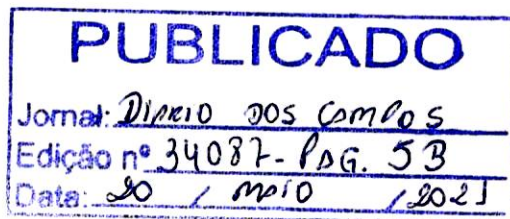 PUBLICADO
Jornal: DIARIO DOS CAMPOS
Edição nº 34087- PAG. 5B
Data: 20 / MAIO / 2021